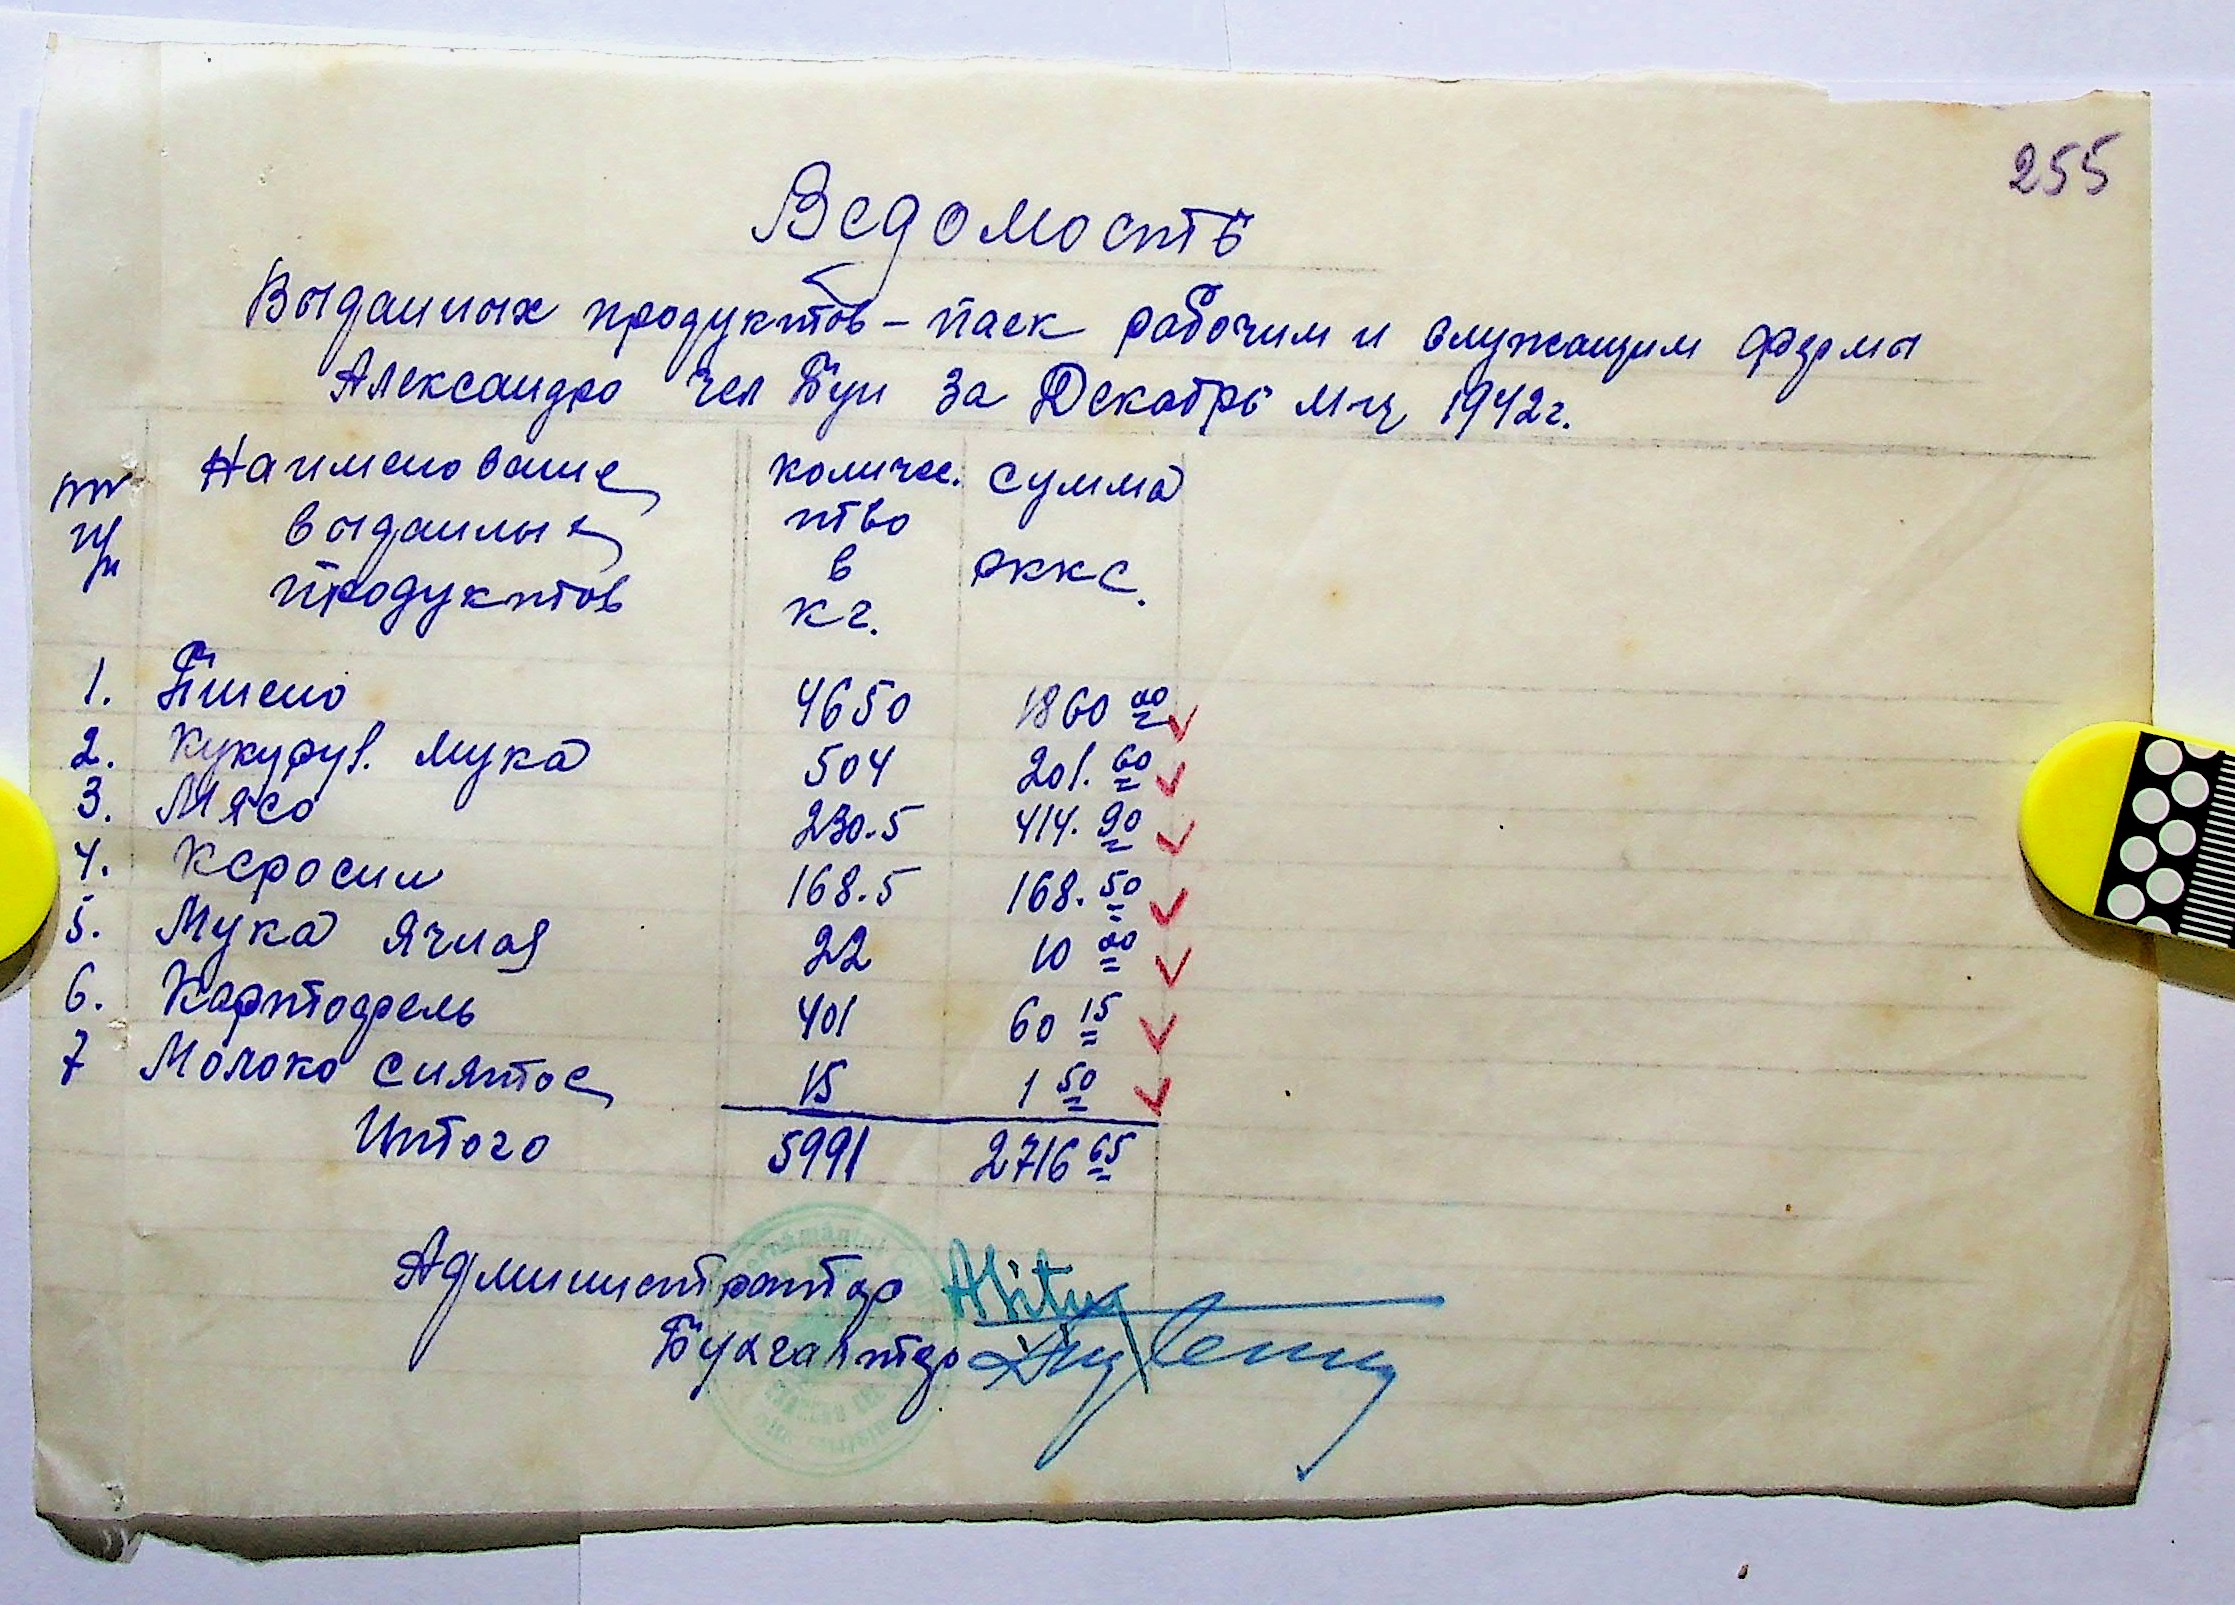 255
Ведомость
Выданных продуктов – паек рабочим и служащим фермы
Александро чел Бун за Декабрь м-ц 1942г.
Наименование выданных продуктов
количес.тво в кг.
сумма рккс.
1. Пшено 4650 1860 00
2. Кукуруз. мука 504 201. 60
3. Мясо 230.5 414. 90
4. Керосин 168.5 168. 50
5. Мука ячная 22 10 00
6. Картофель 401 60 15
7 Молоко снятое 15 1 50
Итого 5991 2716 65
Администратор
Бухгалтер